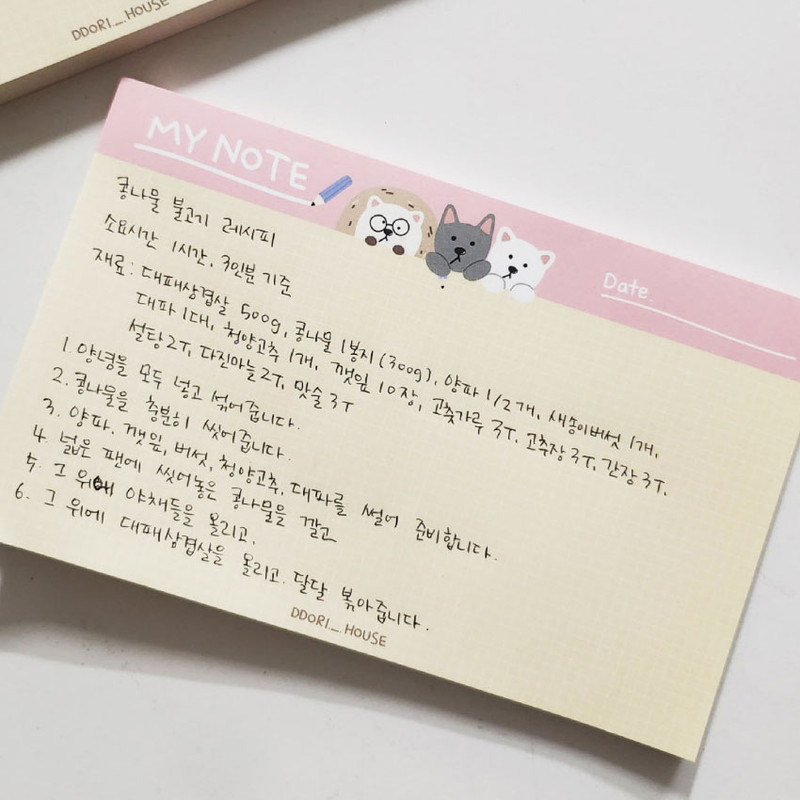 DDORI_HOUSE
MY NOTE
Date.
콩나물 불고기 레시피
소요시간 1시간, 3인분 기준
재료: 대패삼겹살 500g, 콩나물 1봉지(300g), 양파 1/2개, 새송이버섯 1개,
대파 1대, 청양고추 1개, 깻잎 10장, 고춧가루 3T, 고추장 3T, 간장 3T,
설탕 2T, 다진마늘 2T, 맛술 3T
1. 양념을 모두 넣고 섞어줍니다.
2. 콩나물을 충분히 씻어줍니다.
3. 양파, 깻잎, 버섯, 청양고추, 대파를 썰어 준비합니다.
4. 넓은 팬에 씻어놓은 콩나물을 깔고
5. 그 위에 야채들을 올리고,
6. 그 위에 대패삼겹살을 올리고 달달 볶아줍니다.
DDORI_HOUSE